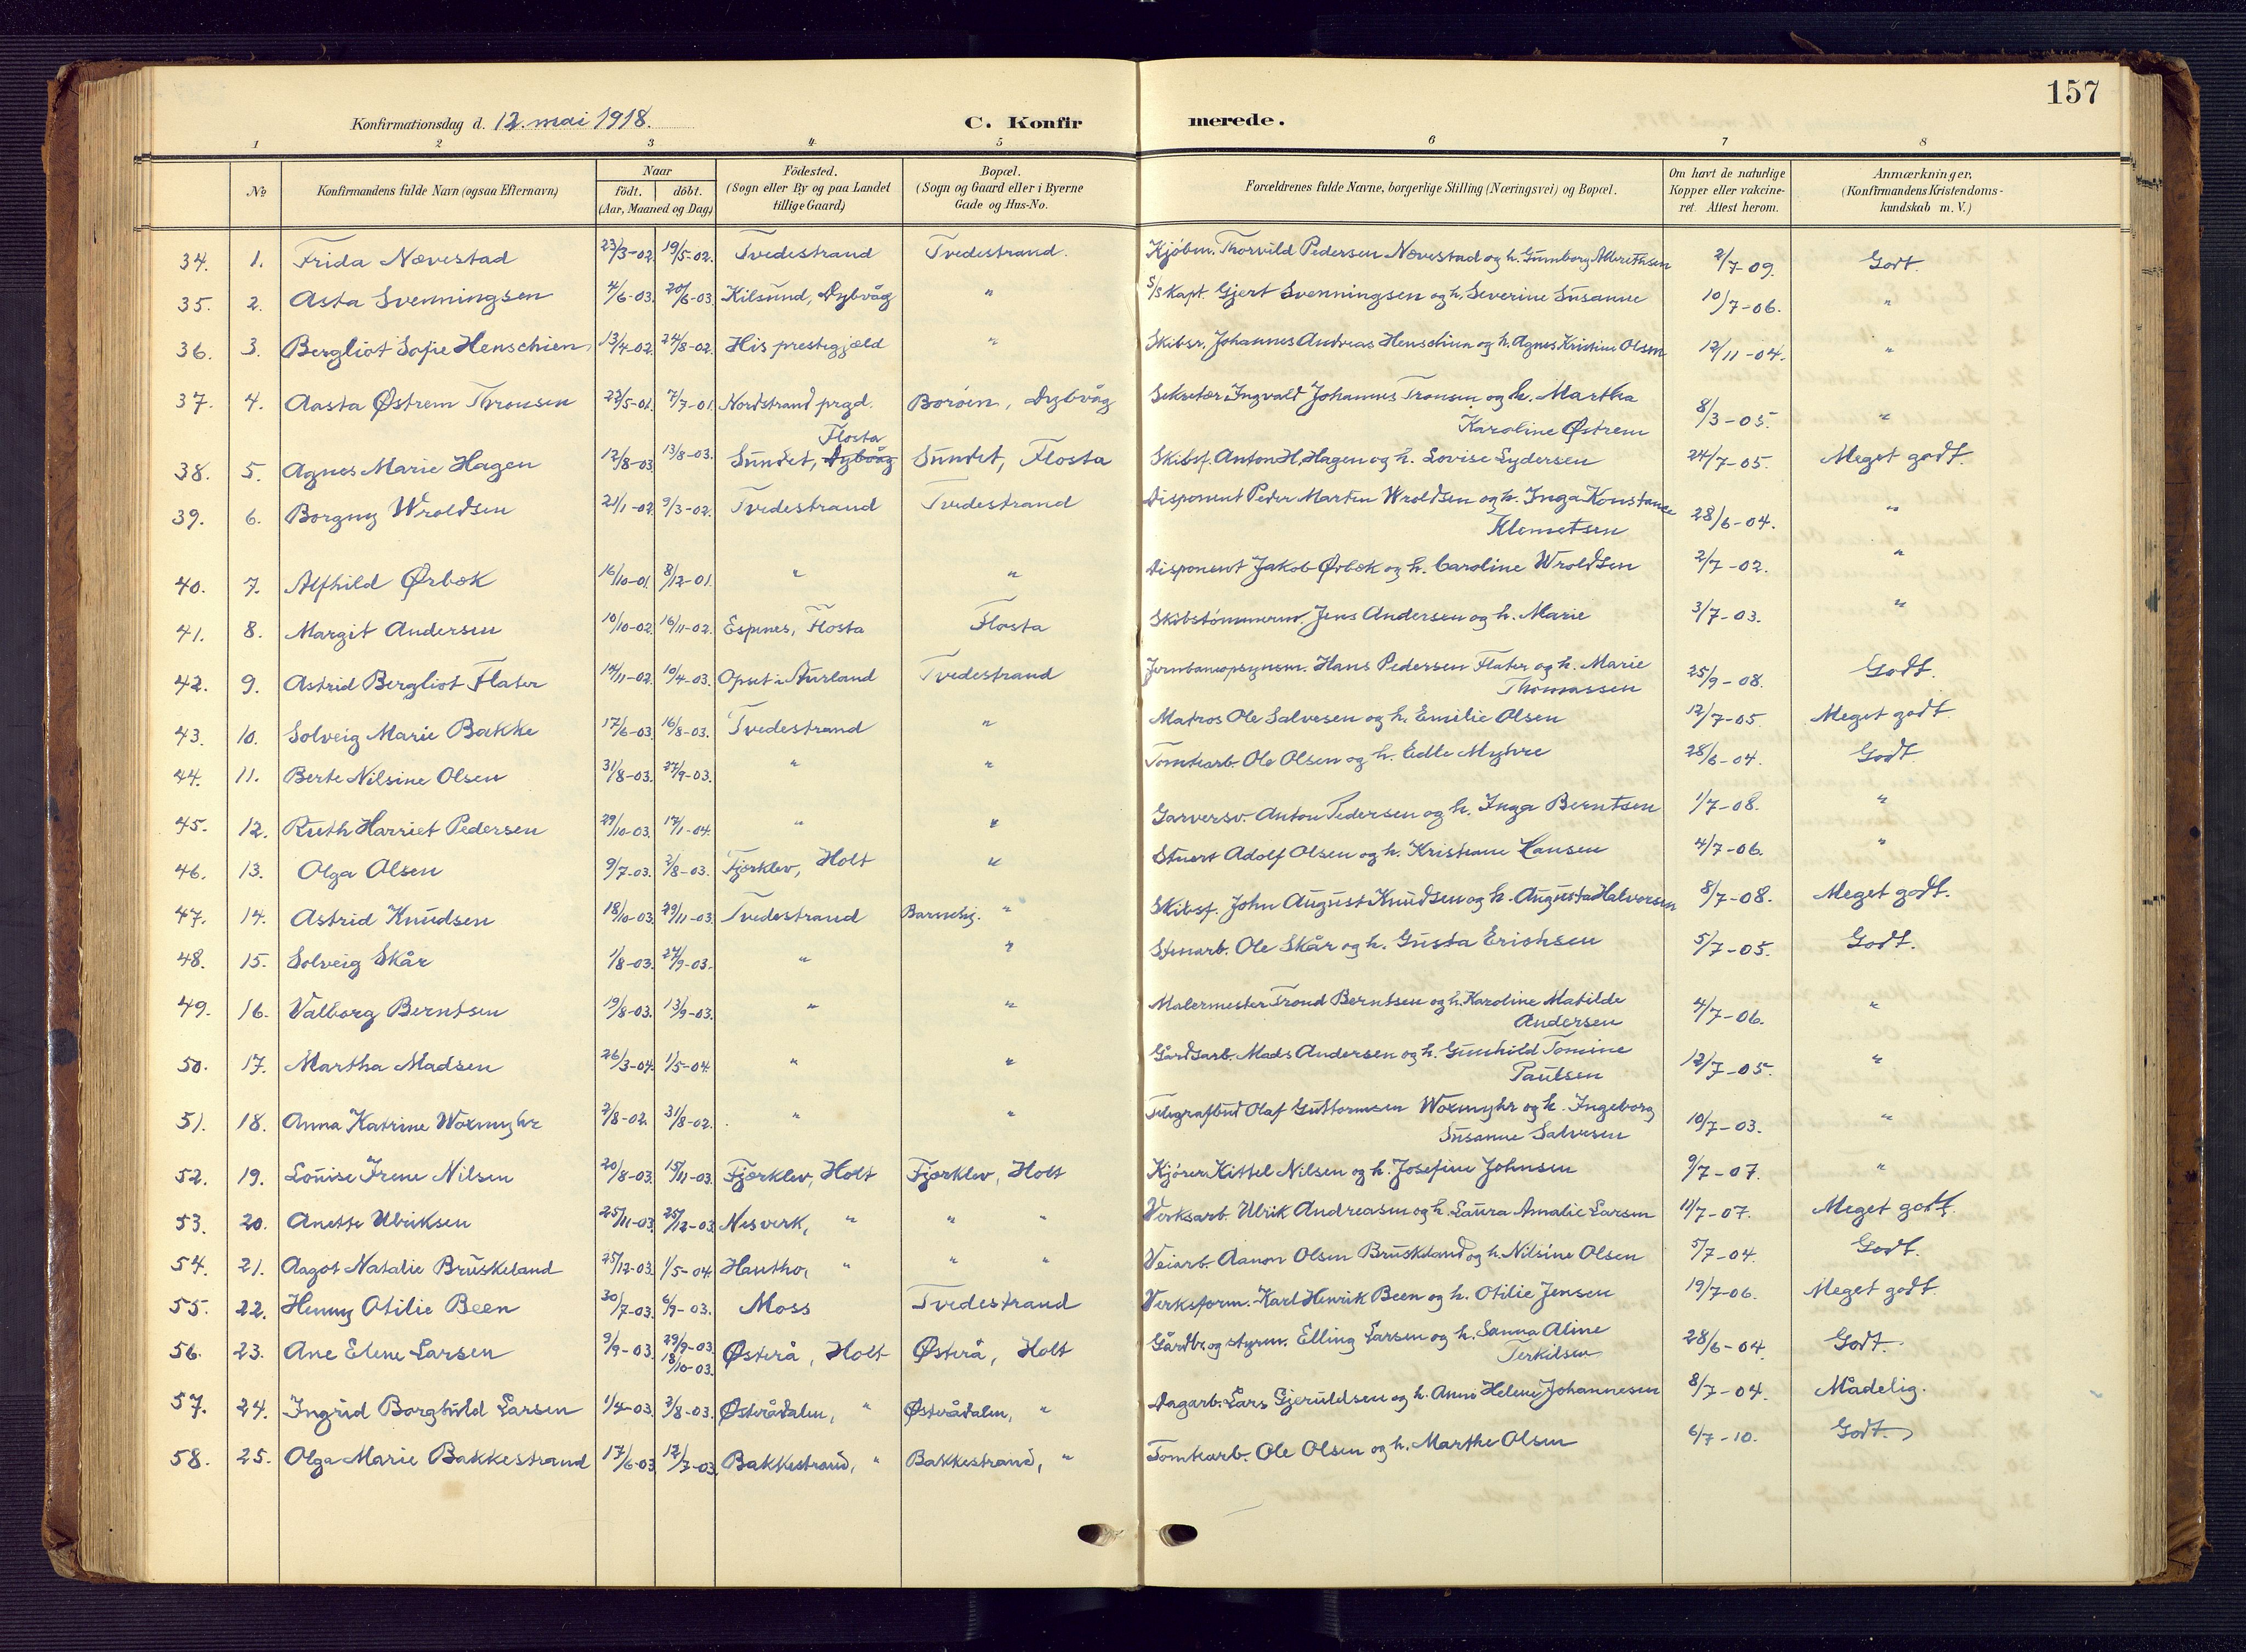 157
Konfirmationsdag d. 12. mai 1918. C. Konfirmerede.
1 2 3 4 5 6 7 8
No Konfirmandens fulde Navn (ogsaa Efternavn) Naar født. døbt. (Aar, Maaned og Dag) Fødested. (Sogn eller By og paa Landet tillige Gaard) Bopæl. (Sogn og Gaard eller i Byerne Gade og Hus-No. Forældrenes fulde Navne, borgerlige Stilling (Næringsvei) og Bopæl. Om havt de naturlige Kopper eller vakcineret. Attest herom. Anmærkninger, (Konfirmandens Kristendomskundskab m. V.)
34. 1. Frida Nævestad 23/3-02. 19/5-02. Tvedestrand Tvedestrand. Kjøbm. Thorvild Pedersen Nævestad og h. Gunnborg Albrethsen 2/7-09. Godt.
35. 2. Asta Svenningsen 4/6-03. 20/6-03. Kilsund, Dybvåg " S/S Kapt. Gjert Svenningsen og h. Severine Susanne 10/7-06. "
36. 3. Bergliot Sofie Henschien 13/4-02. 24/8-02. His prestegjæld " Skibsr. Johannes Andreas Henschien og h. Agnes Kristine Olsen 12/11-04. "
37. 4. Aasta Østrem Thronsen 22/5-01. 7/7-01. Nordstrand prgd. Borøen, Dybvåg Sekretær Ingvald Johannes Tronsen og h. Martha
Karoline Østrem 8/3-05. "
Flosta
38. 5. Agnes Marie Hagen 12/8-03 13/8-03. Sundet, Dybvåg Sundet, Flosta Skibsf. Anton H. Hagen og h. Lovise Lydersen 24/7-05. Meget godt.
39. 6. Borgny Wroldsen 21/1-02. 9/3-02. Tvedestrand Tvedestrand Disponent Peder Martin Wroldsen og h. Inga Konstanse
Klemetsen 28/6-04. "
40. 7. Alfhild Ørbæk 16/10-01. 8/12-01. " " Disponent Jakob Ørbæk og h. Caroline Wroldsen 2/7-02. "
41. 8. Margit Andersen 10/10-02. 16/11-02. Espenes, Flosta Flosta Skibstømmerm. Jens Andersen og h. Marie 3/7-03. "
42. 9. Astrid Bergliot Flater 14/11-02. 10/4-03. Opset i Aurland Tvedestrand Jernbaneopsynsm. Hans Pedersen Flater og h. Marie
Thomassen 25/9-08. Godt.
43. 10. Solveig Marie Bakke 17/6-03. 16/8-03. Tvedestrand " Matros Ole Salvesen og h. Emilie Olsen 12/7-05. Meget godt.
44. 11. Berte Nilsine Olsen 31/8-03. 27/9-03. " " Tomtearb. Ole Olsen og h. Edle Myhre 28/6-04. Godt
45. 12. Ruth Harriet Pedersen 29/10-03. 17/1-04. " " Garversv. Anton Pedersen og h. Inga Berntsen 1/7-08. "
46. 13. Olga Olsen 9/7-03. 2/8-03. Fjærklev, Holt " Stuert Adolf Olsen og h. Kristiane Hansen 4/7-06. "
47. 14. Astrid Knudsen 18/10-03. 29/11-03. Tvedestrand Barnelig. " Skibsf. John August Knudsen og h. Augusta Halvorsen 8/7-08. Meget godt.
48. 15. Solveig Skår 1/8-03. 27/9-03. " " Stenarb. Ole Skår og h. Gusta Erichsen 5/7-05. Godt.
49. 16. Valborg Berntsen 19/8-03. 13/9-03. " " Malermester Trond Berntsen og h. Karoline Matilde
Andersen 4/7-06. "
50. 17. Martha Madsen 26/3-04. 1/5-04. " " Gårdsarb. Mads Andersen og h. Gunhild Tomine
Paulsen 12/7-05. "
51. 18. Anna Katrine Woxmyhr 2/8-02. 31/8-02. " " Telegrafbud Olaf Guttormsen Woxmyhr og h. Ingeborg
Susanne Salvesen 10/7-03. "
52. 19. Louise Irene Nilsen 20/8-03. 15/11-03. Fjærklev, Holt Fjærklev, Holt Kjører Kittel Nilsen og h. Josefine Johnsen 9/7-07. "
53. 20. Anette Ulriksen 25/11-03. 25/12-03 Nesverk, " " " Verksarb. Ulrik Andreasen og h. Laura Amalie Larsen 11/7-07. Meget godt.
54. 21. Aagot Natalie Bruskeland 25/12-03. 1/5-04. Hantho, " " " Veiarb. Aanon Olsen Bruskeland og h. Nilsine Olsen 5/7-04. Godt.
55. 22. Henny Otilie Been 30/7-03. 6/9-03. Moss Tvedestrand Verksform. Karl Henrik Been og h. Otilie Jensen 19/7-06. Meget godt.
56. 23. Ane Elene Larsen 9/9-03. 29/9-03. 18/10-03. Østerå, Holt Østerå, Holt Gårdbr. og styrm. Elling Larsen og h. Sanna Aline
Terkilsen 28/6-04. Godt.
57. 24. Ingrid Borghild Larsen 1/4-03. 2/8-03. Østerådalen, " Østerådalen, " Dagarb. Lars Gjeruldsen og h. Anne Helene Johannesen 8/7-04. Mådelig.
58. 25. Olga Marie Bakkestrand 17/6-03. 12/7-03. Bakkestrand, " Bakkestrand, " Tomtearb. Ole Olsen og h. Marthe Olsen 6/7-10. Godt.